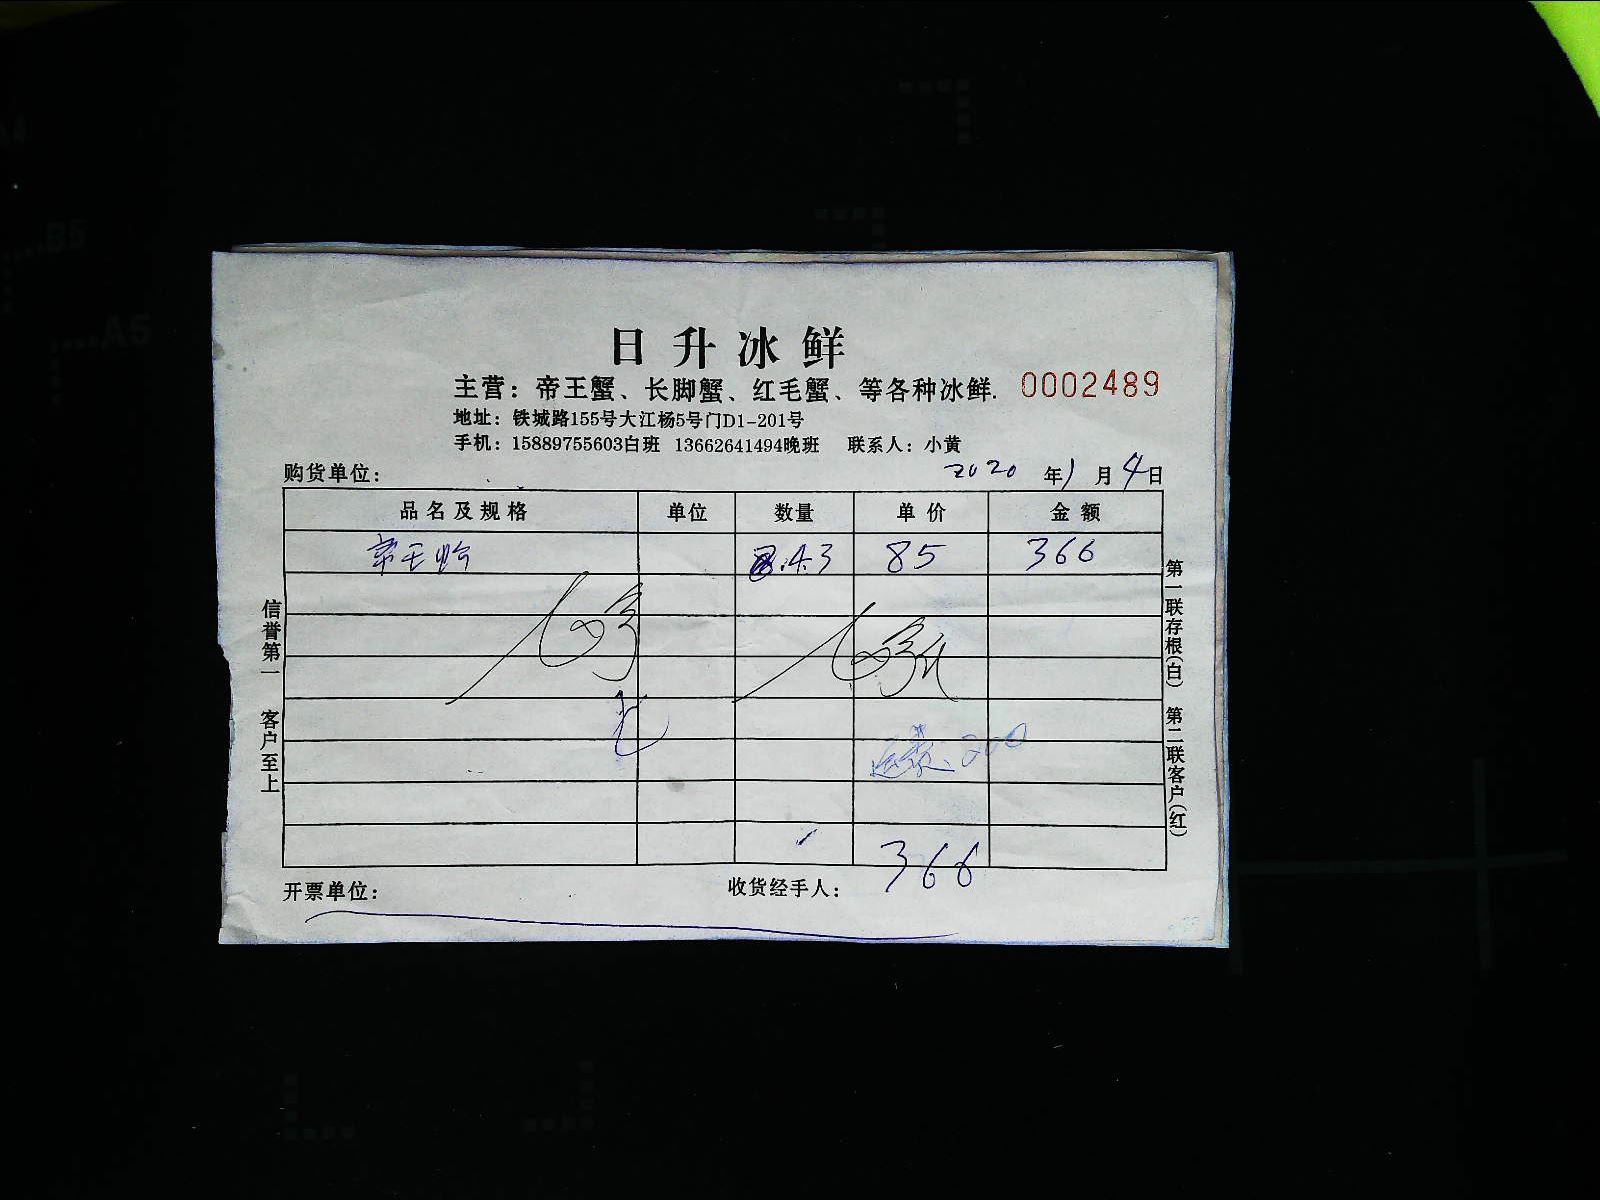 日升冰鲜
主营：帝王蟹、长脚蟹、红毛蟹、等各种冰鲜. 0002489
地址：铁城路155号大江杨5号门D1-201号
手机：15889755603白班 13662641494晚班 联系人：小黄
购货单位： 2020 年 1 月 4 日
品名及规格 单位 数量 单价 金额
帝王 4.3 85 366
运费 200
366
开票单位： 收货经手人：
信誉第一 客户至上
第一联存根(白) 第二联客户(红)
A5
B5